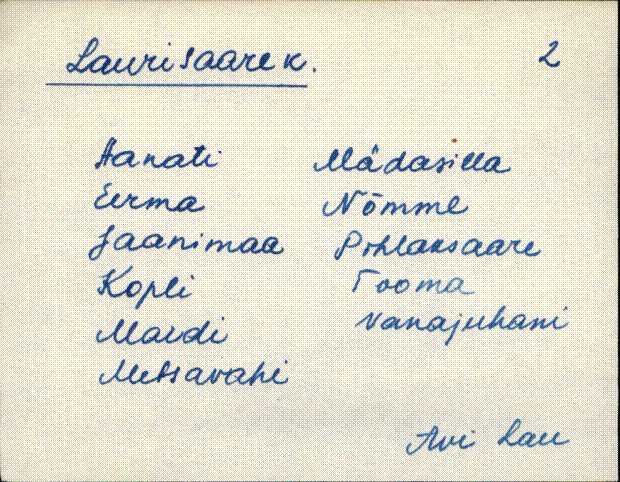 Laurisaare k. 2
Aanati
Eerma
Jaanimaa
Kopli
Mardi
Metsavahi
Mädasilla
Nõmme
Pihlaksaare
Tooma
Vanajuhani
Avi Lau